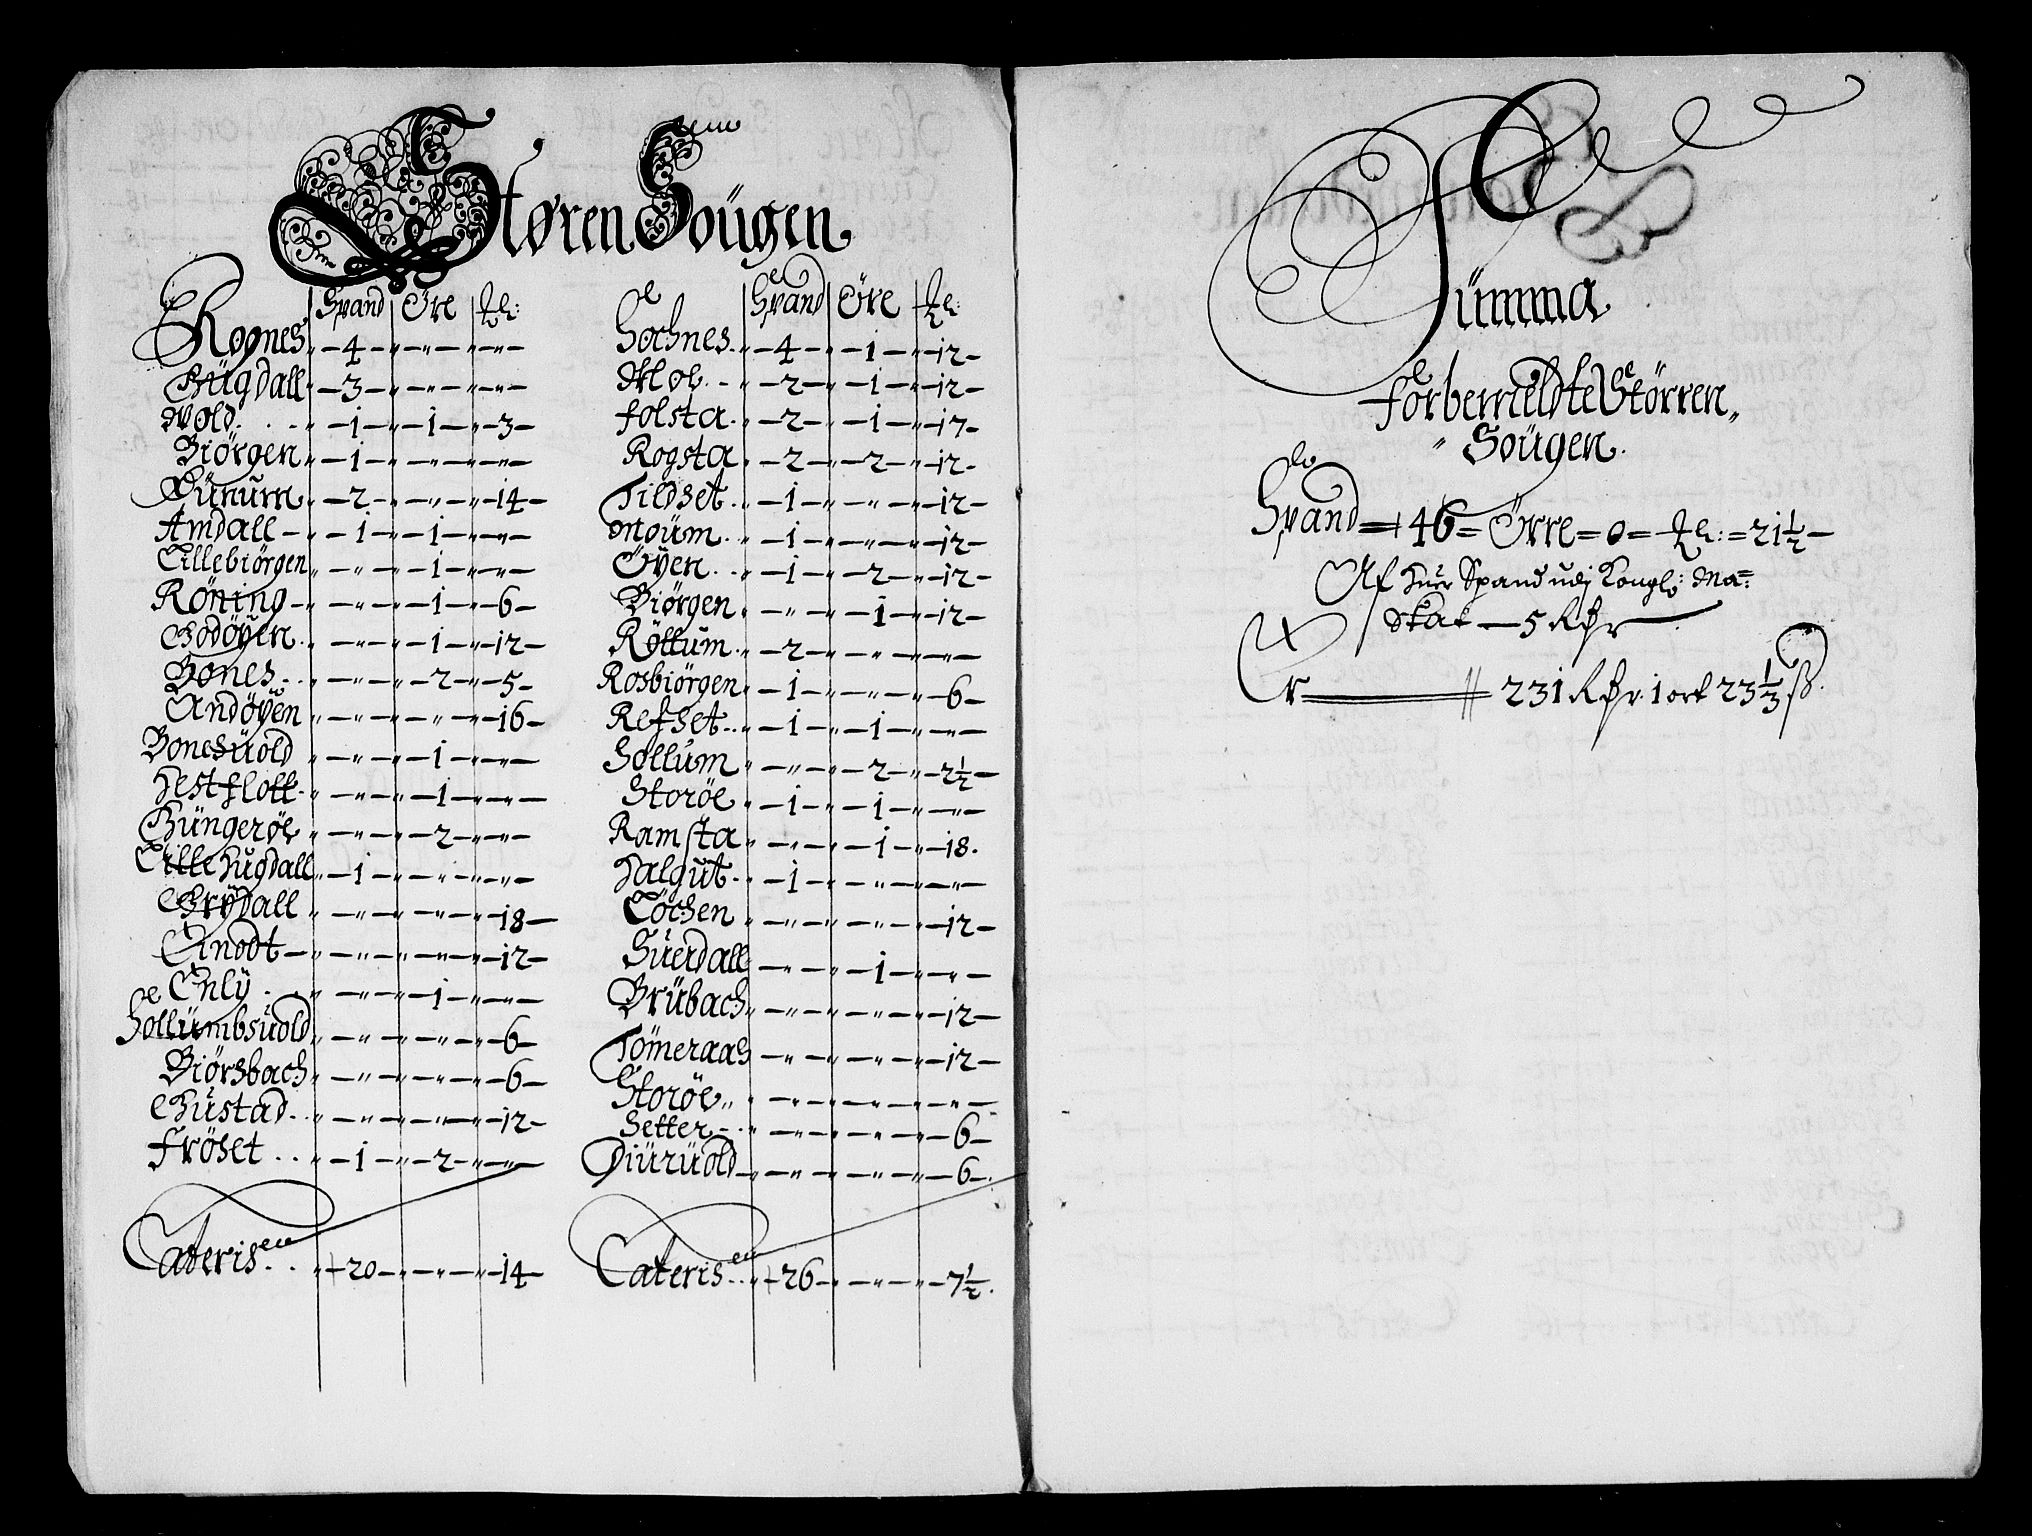 Støren Soügen
Spand Øre
Rognes 4
Bügdall 3
Vold 1 1 3
Biörgen 1
Dünum 2 14
Amdall 1 1
Lillebiörgen 1
Röning 1 6
Godöyen 1 12
Bones 2 5
Andöyen 16
Bonesüold 1
Hestflott 1
Büngerøe 2
Lille Hugdall 1
Grÿdall 18
Enodt 12
Enlÿ 1
Sollümbsüold 6
Biörsbach 6
Güstad 12
Fröset 1 2
Lateris 20 14
Spand Øre
Sochnes 4 1 12
Moe 2 1 12
Folsta 2 1 17
Rogsta 2 2 12
Tildset 1 12
Moüm 1 12
Öyen 1 2 12
Biörgen 1 12
Röttum 2
Rosbiörgen 1 6
Refset 1 1
Sollüm 2 2½
Storöe 1 1
Ramsta 1 18
Halgüt 1
Löchen 12
Süerdall 1
Brübach 12
Tömeraas 12
Storöe
Setter 6
Diürüold 6
Lateris 26 7½
Summa
Forbemeldte Störren
Soügen
Spand 46 Örre 0 21½
Af huer Spand udj Kongl: Ma:
Skat 5 Rdr
Er 231 Rdr 1 ort 23⅓ ß